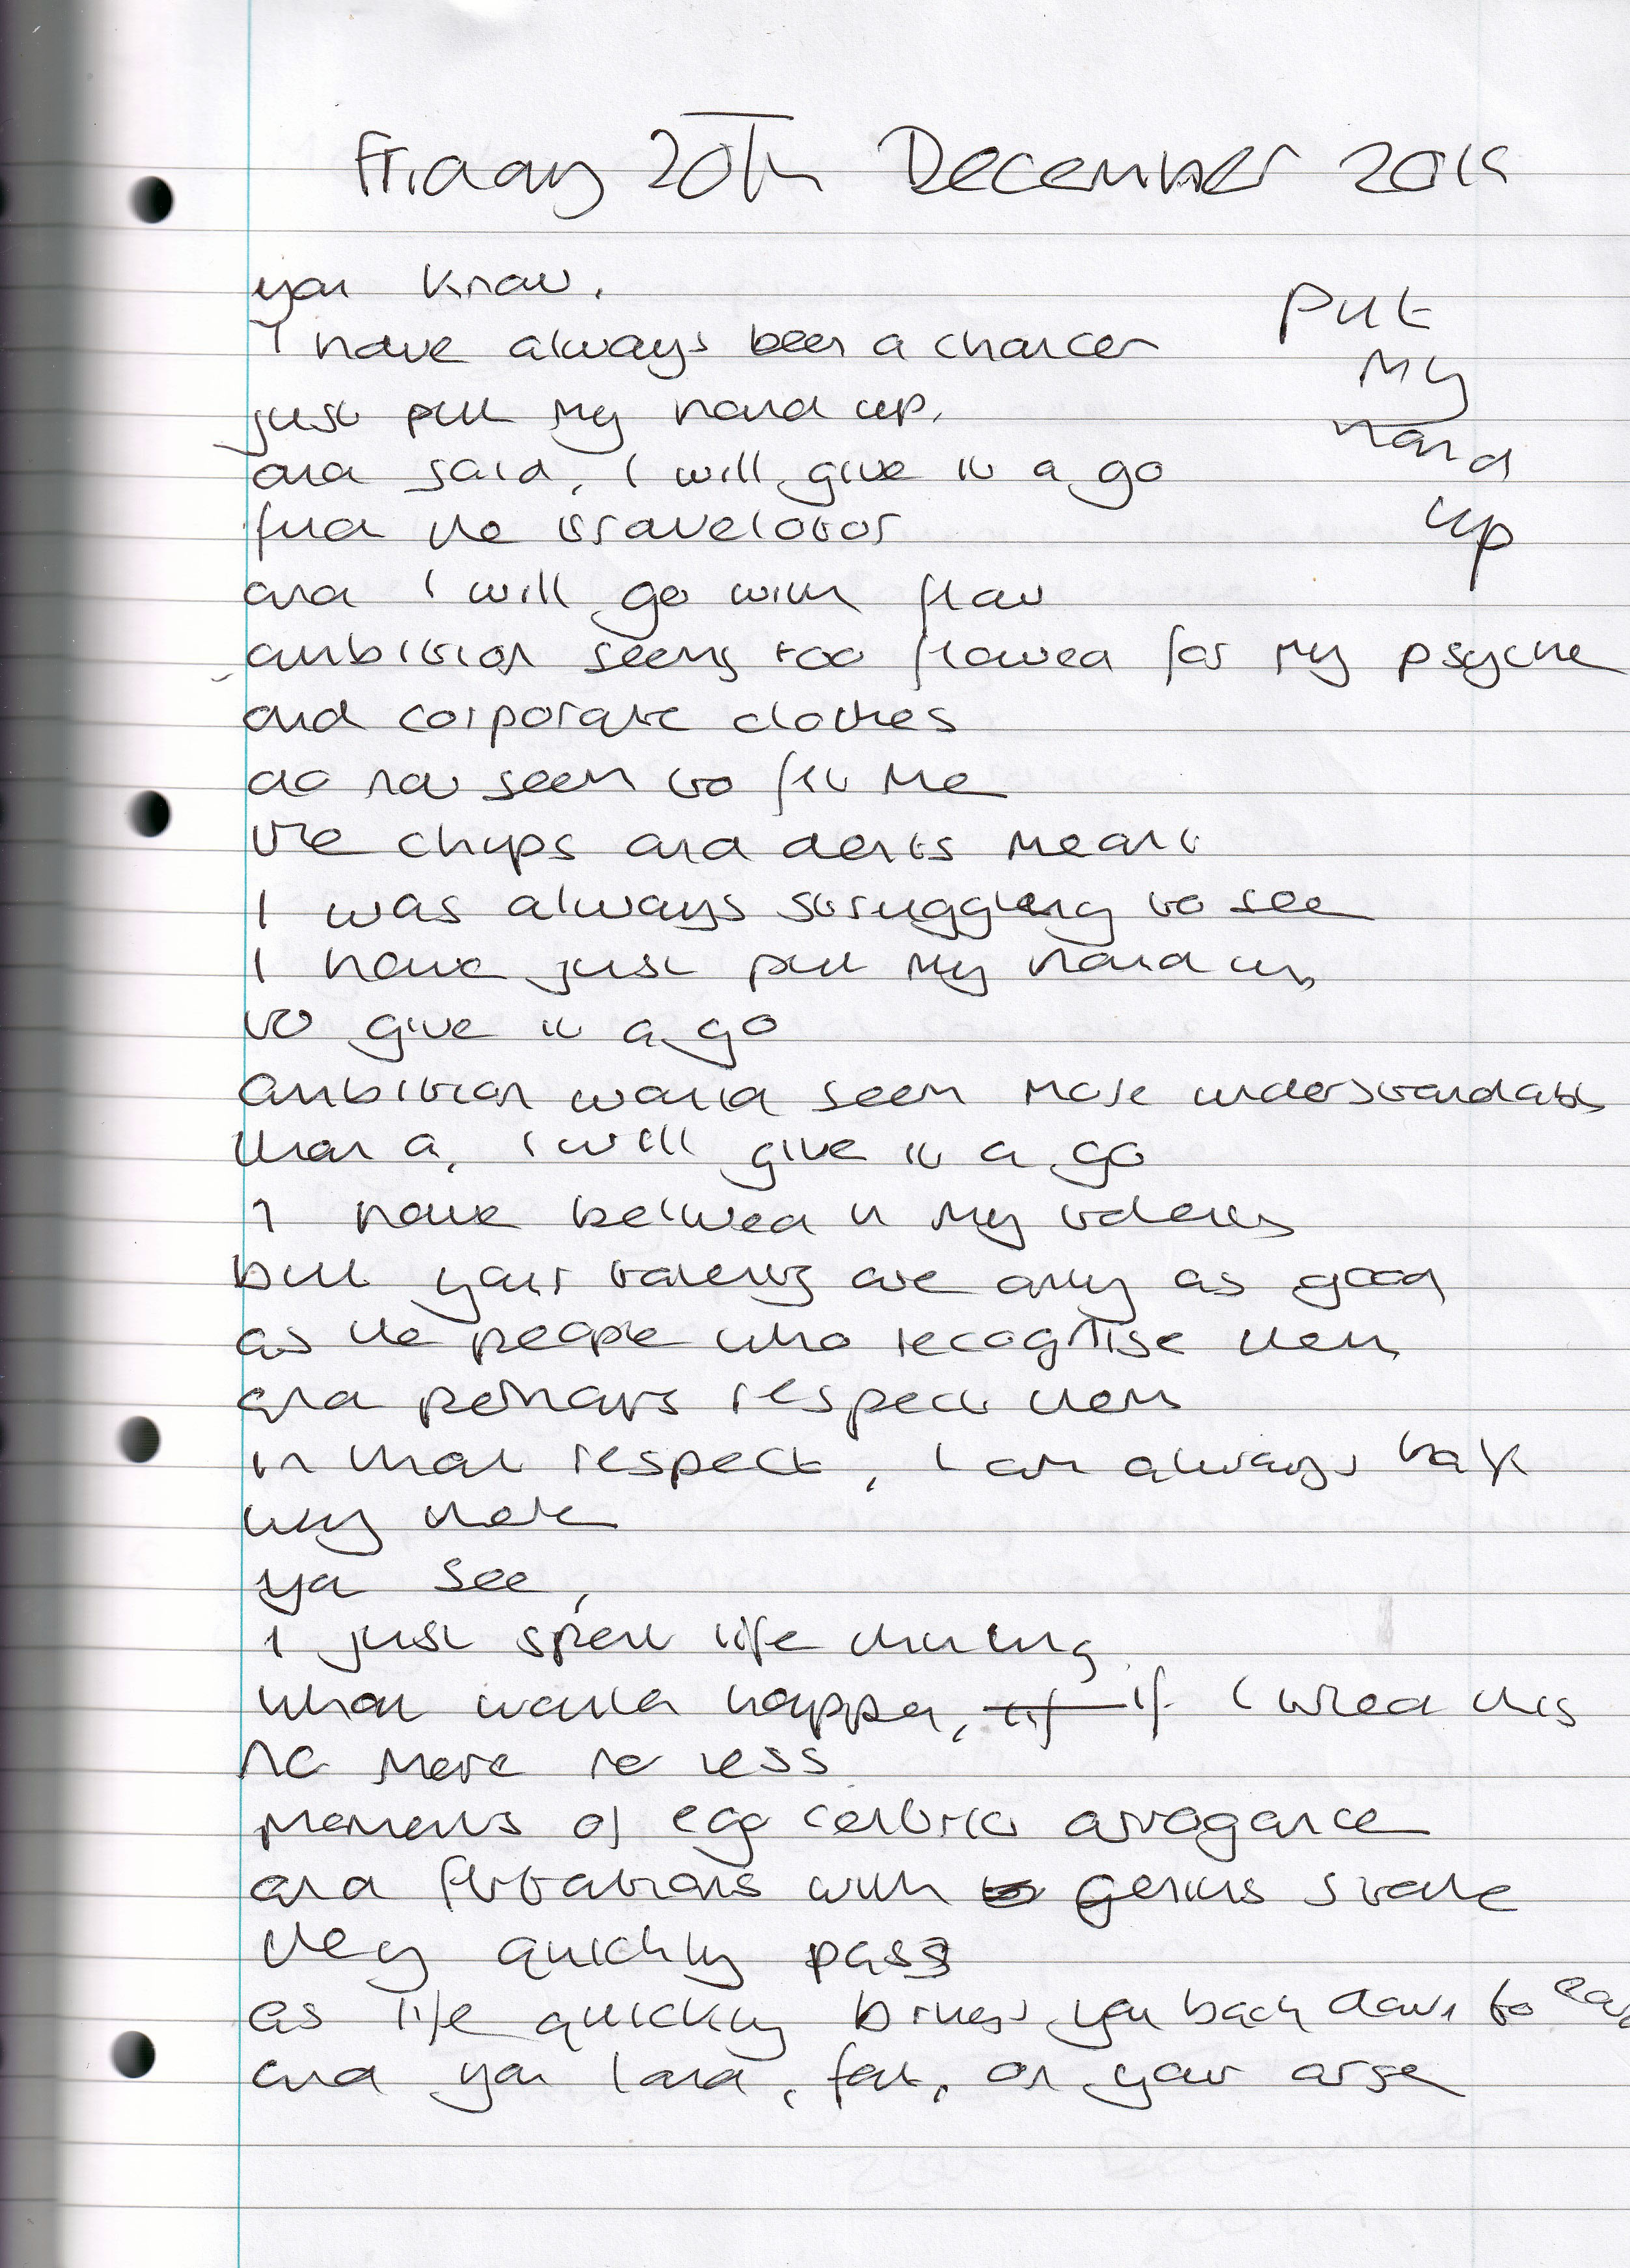 Friday 20th December 2019
Put
My
hand
up
you know.
I have always been a chancer
just put my hand up.
and said, I will give it a go
find the travelator
and I will go with flow
ambition seems too flawed for my psyche
and corporate clothes
do not seem to fit me
the chips and dents meant
I was always struggling to see
I have just put my hand up
to give it a go
Ambition would seem more understandable
than a, I will give it a go
I have believed in my talents
but your talents are only as good
as the people who recognise them
and perhaps respect them
in that respect, I am always half
way there
ya see,
I just spent life thinking
what would happen, if if I tried this
no more no less
moments of ego centric arrogance
and flirtations with genius state
very quickly pass
as life quickly brings you back down to
and you land, fat, on your arse